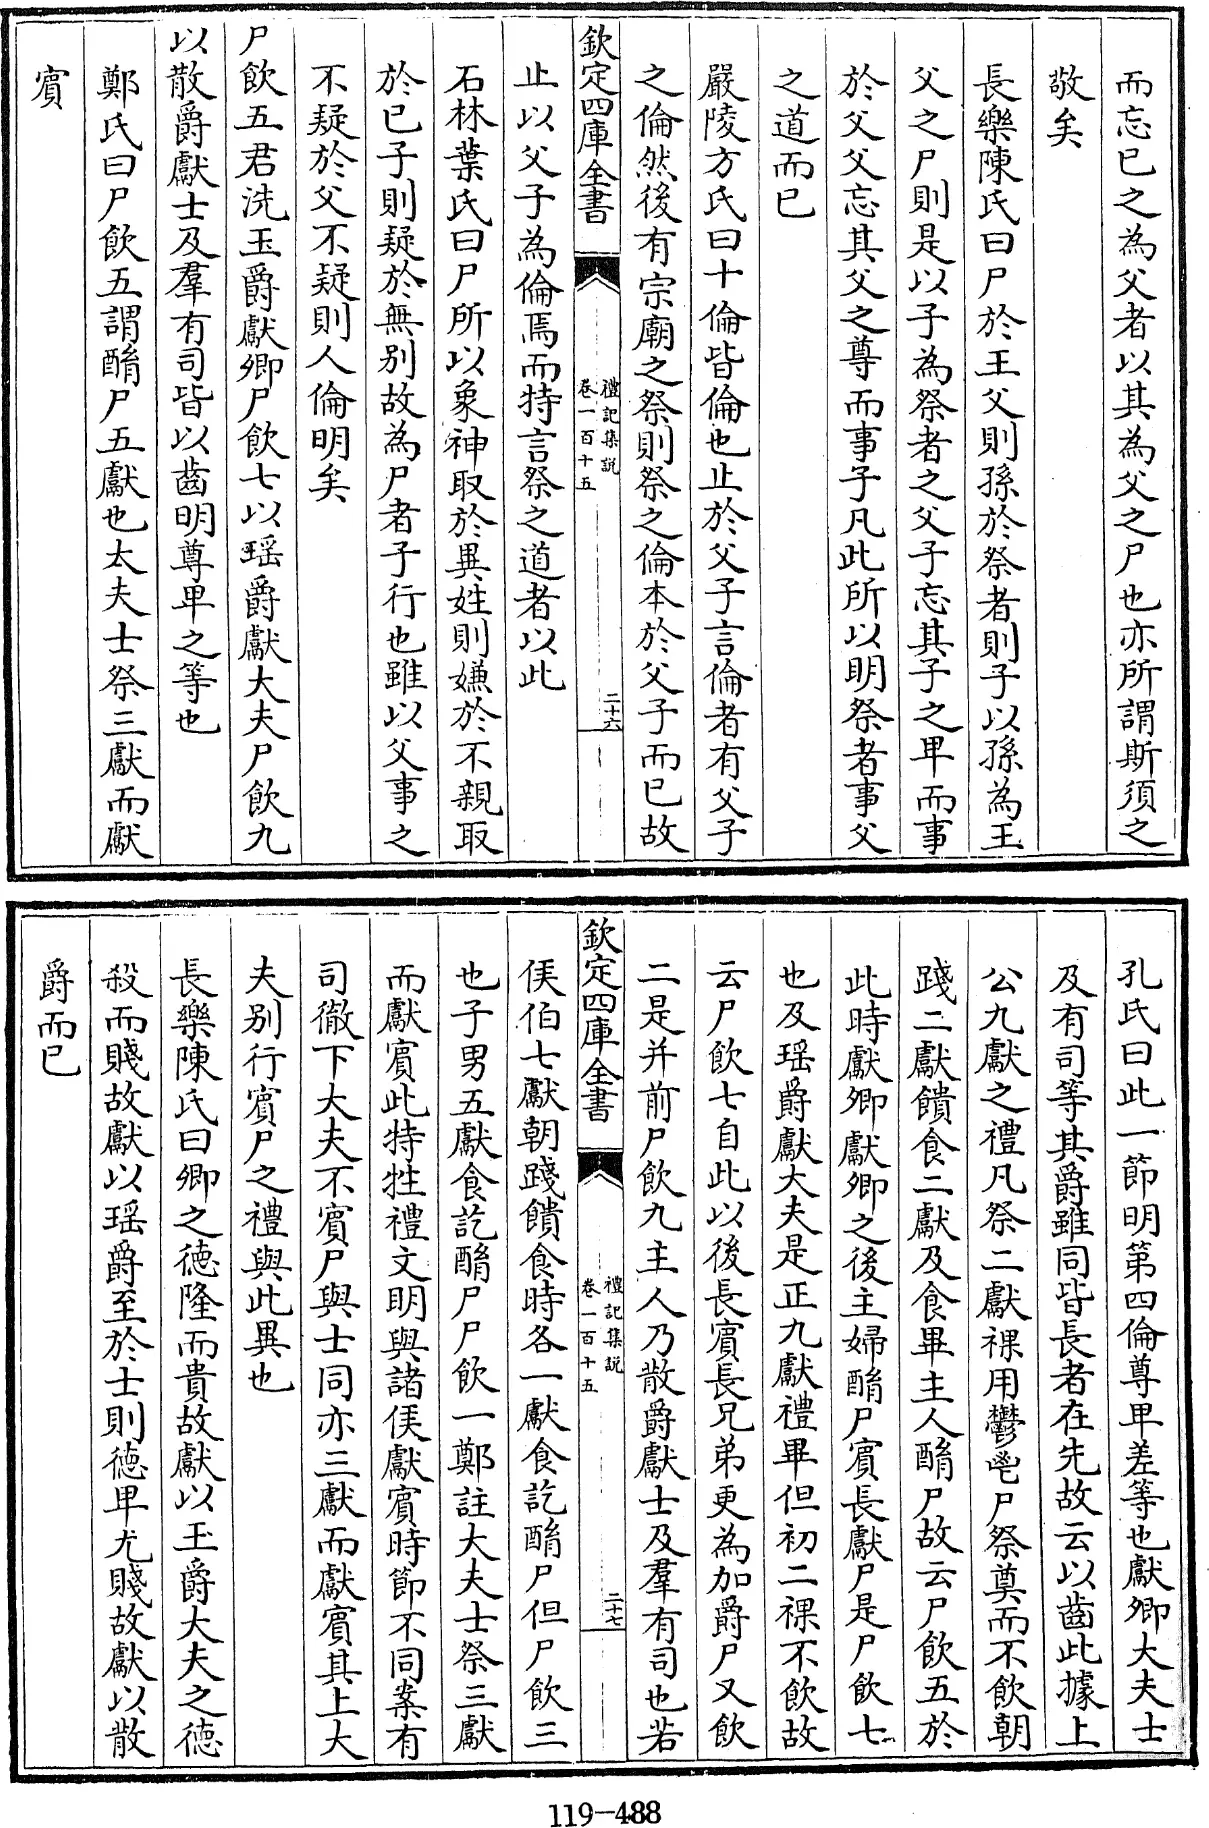 而忘已之為父者以其為父之尸也亦所謂斯須之
敬矣
長樂陳氏曰尸於王父則孫於祭者則子以孫為王
父之尸則是以子為祭者之父子忘其子之卑而事
於父父忘其父之尊而事子凡此所以明祭者事父
之道而已
嚴陵方氏曰十倫皆倫也止於父子言倫者有父子
之倫然後有宗廟之祭則祭之倫本於父子而已故
欽定四庫全書
禮記集説
卷一百十五
二十六
止以父子為倫焉而特言祭之道者以此
石林葉氏曰尸所以象神取於異姓則嫌於不親取
於已子則疑於無别故為尸者子行也雖以父事之
不疑於父不疑則人倫明矣
尸飲五君洗玉爵獻卿尸飲七以瑶爵獻大夫尸飲九
以散爵獻士及羣有司皆以齒明尊卑之等也
鄭氏曰尸飲五謂酳尸五獻也太夫士祭三獻而獻
賓
孔氏曰此一節明第四倫尊卑差等也獻卿大夫士
及有司等其爵雖同皆長者在先故云以齒此據上
公九獻之禮凡祭二獻祼用鬱鬯尸祭奠而不飲朝
踐二獻饋食二獻及食畢主人酳尸故云尸飲五於
此時獻卿獻卿之後主婦酳尸賓長獻尸是尸飲七
也及瑶爵獻大夫是正九獻禮畢但初二祼不飲故
云尸飲七自此以後長賓長兄弟更為加爵尸又飲
二是并前尸飲九主人乃散爵獻士及羣有司也若
欽定四庫全書
禮記集説
卷一百十五
二十七
侯伯七獻朝踐饋食時各一獻食訖酳尸但尸飲三
也子男五獻食訖酳尸尸飲一鄭註大夫士祭三獻
而獻賓此特牲禮文明與諸侯獻賓時節不同案有
司徹下大夫不賓尸與士同亦三獻而獻賓其上大
夫别行賓尸之禮與此異也
長樂陳氏曰卿之德隆而貴故獻以玉爵大夫之德
殺而賤故獻以瑶爵至於士則德卑尤賤故獻以散
爵而已
119-488